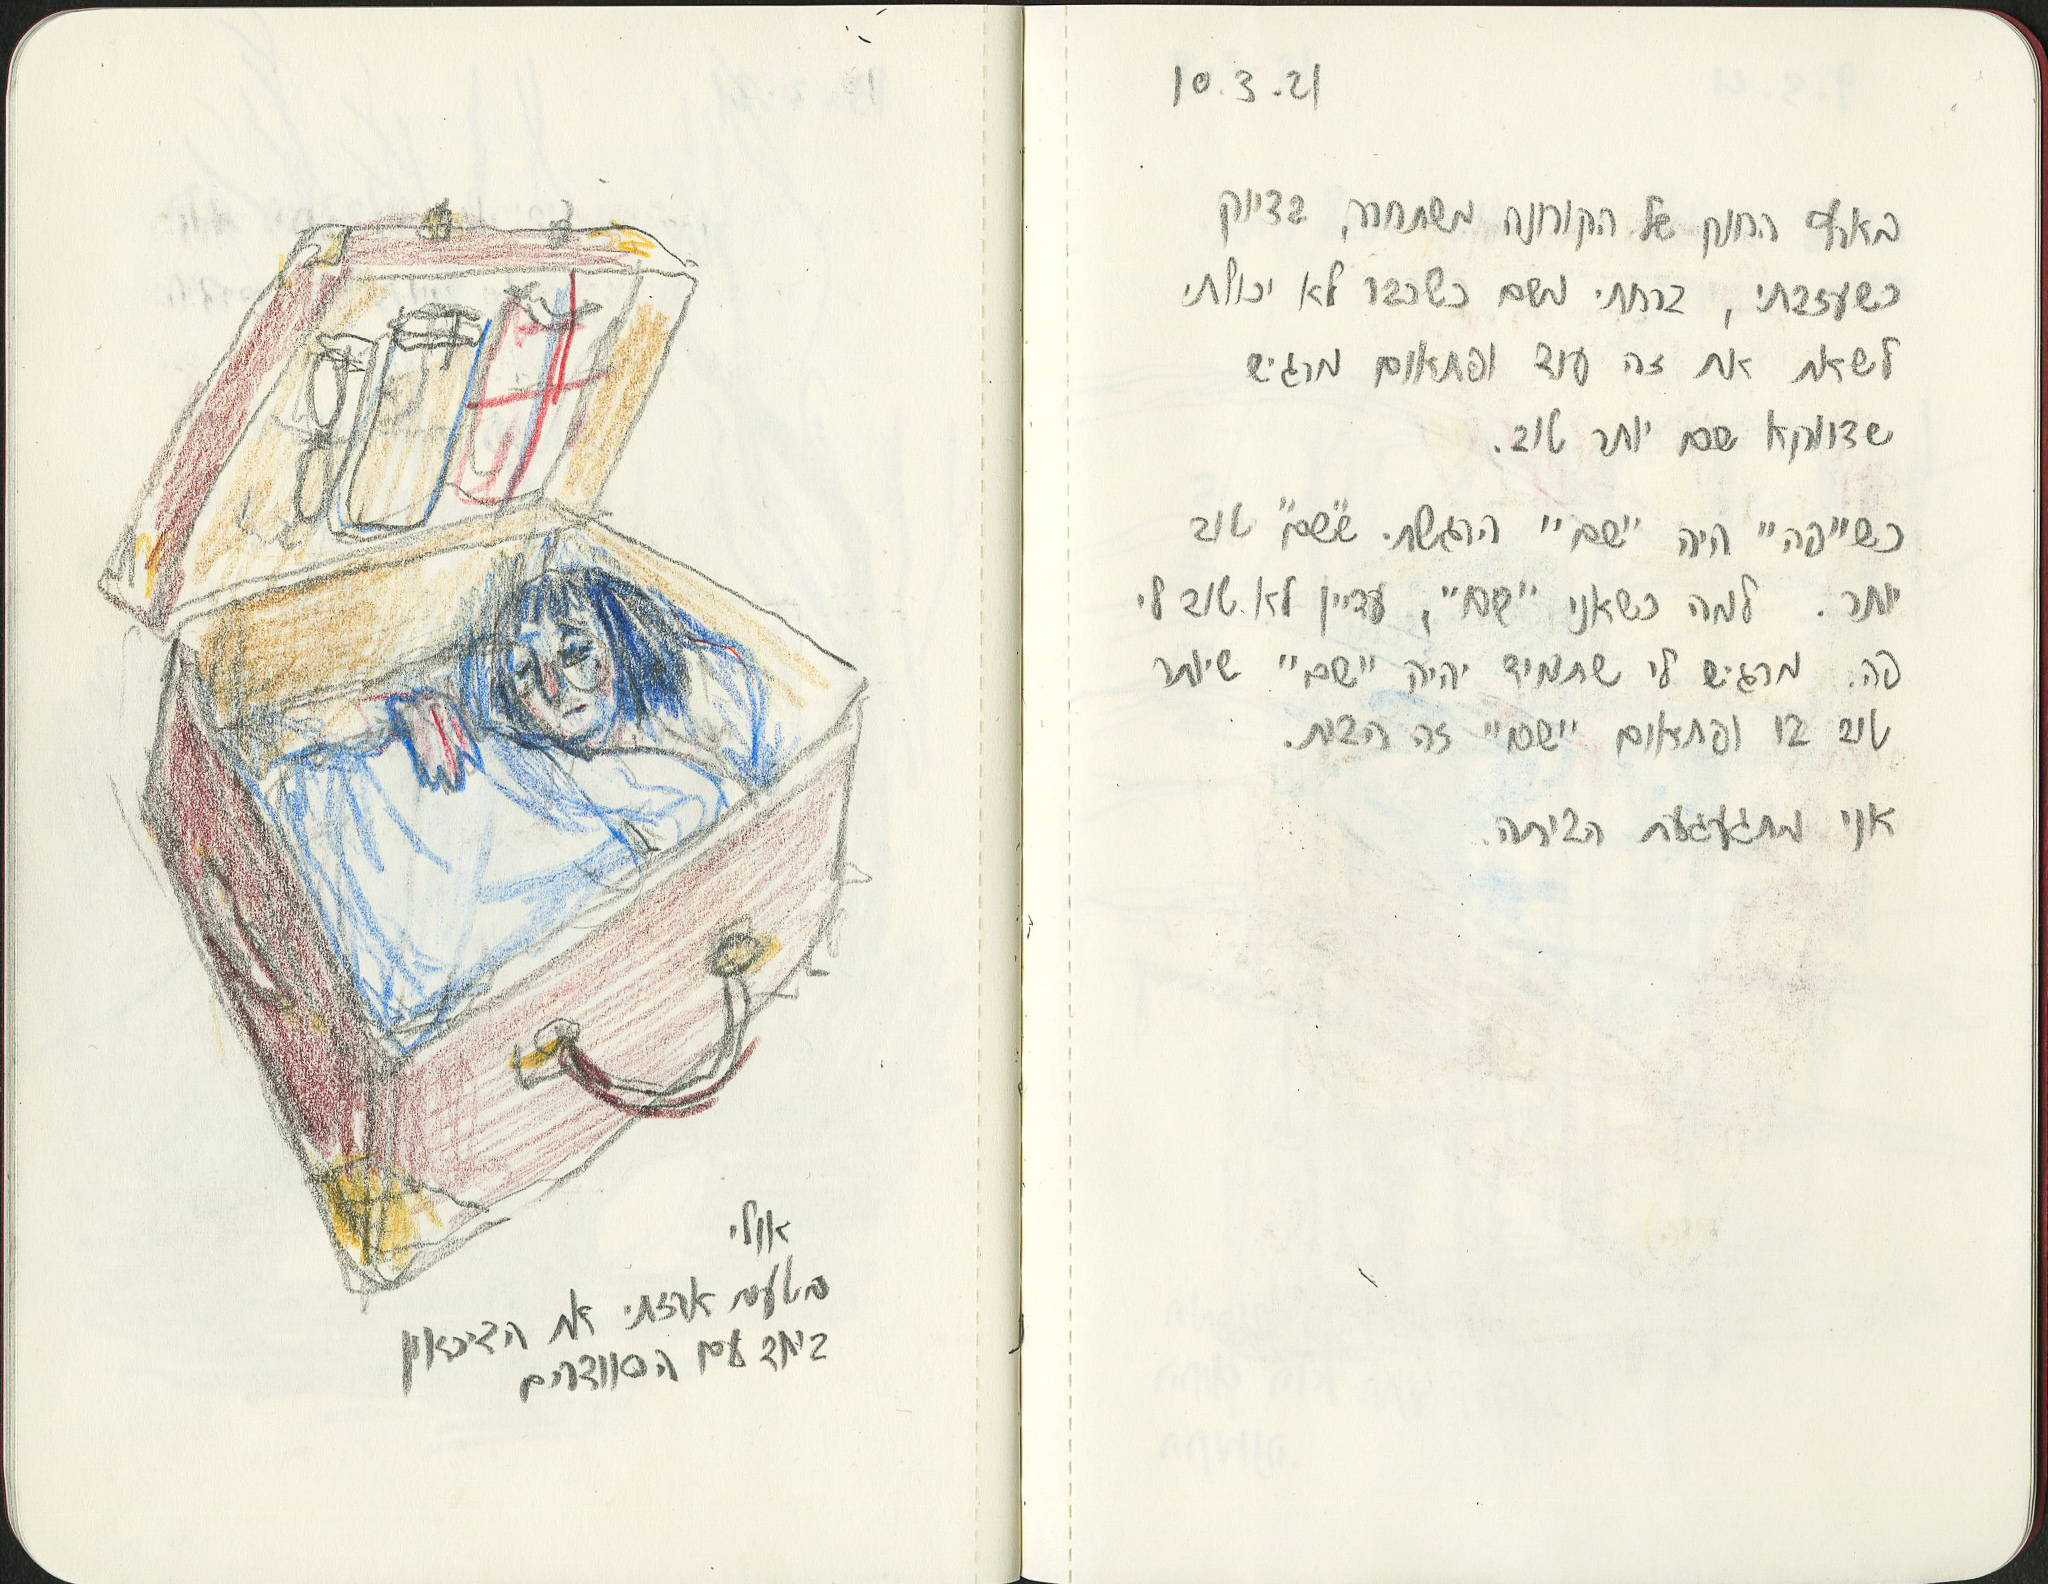 10.3.21
בארץ החונק של הקורונה משתחרר, בדיוק
כשעזבתי, ברחתי משם כשכבר לא יכולתי
לשאת את זה עוד ופתאום מרגיש
שדווקא שם יותר טוב.
כש"פה" היה "שם" הרגשתי ש"שם" טוב
יותר. למה כשאני "שם", עדיין לא טוב לי
פה. מרגיש לי שתמיד יהיה "שם" שיותר
טוב בו ופתאום "שם" זה הבית.
אני מתגעגעת הביתה.
אולי
בטעות ארזתי את הדיכאון
ביחד עם הסוודרים